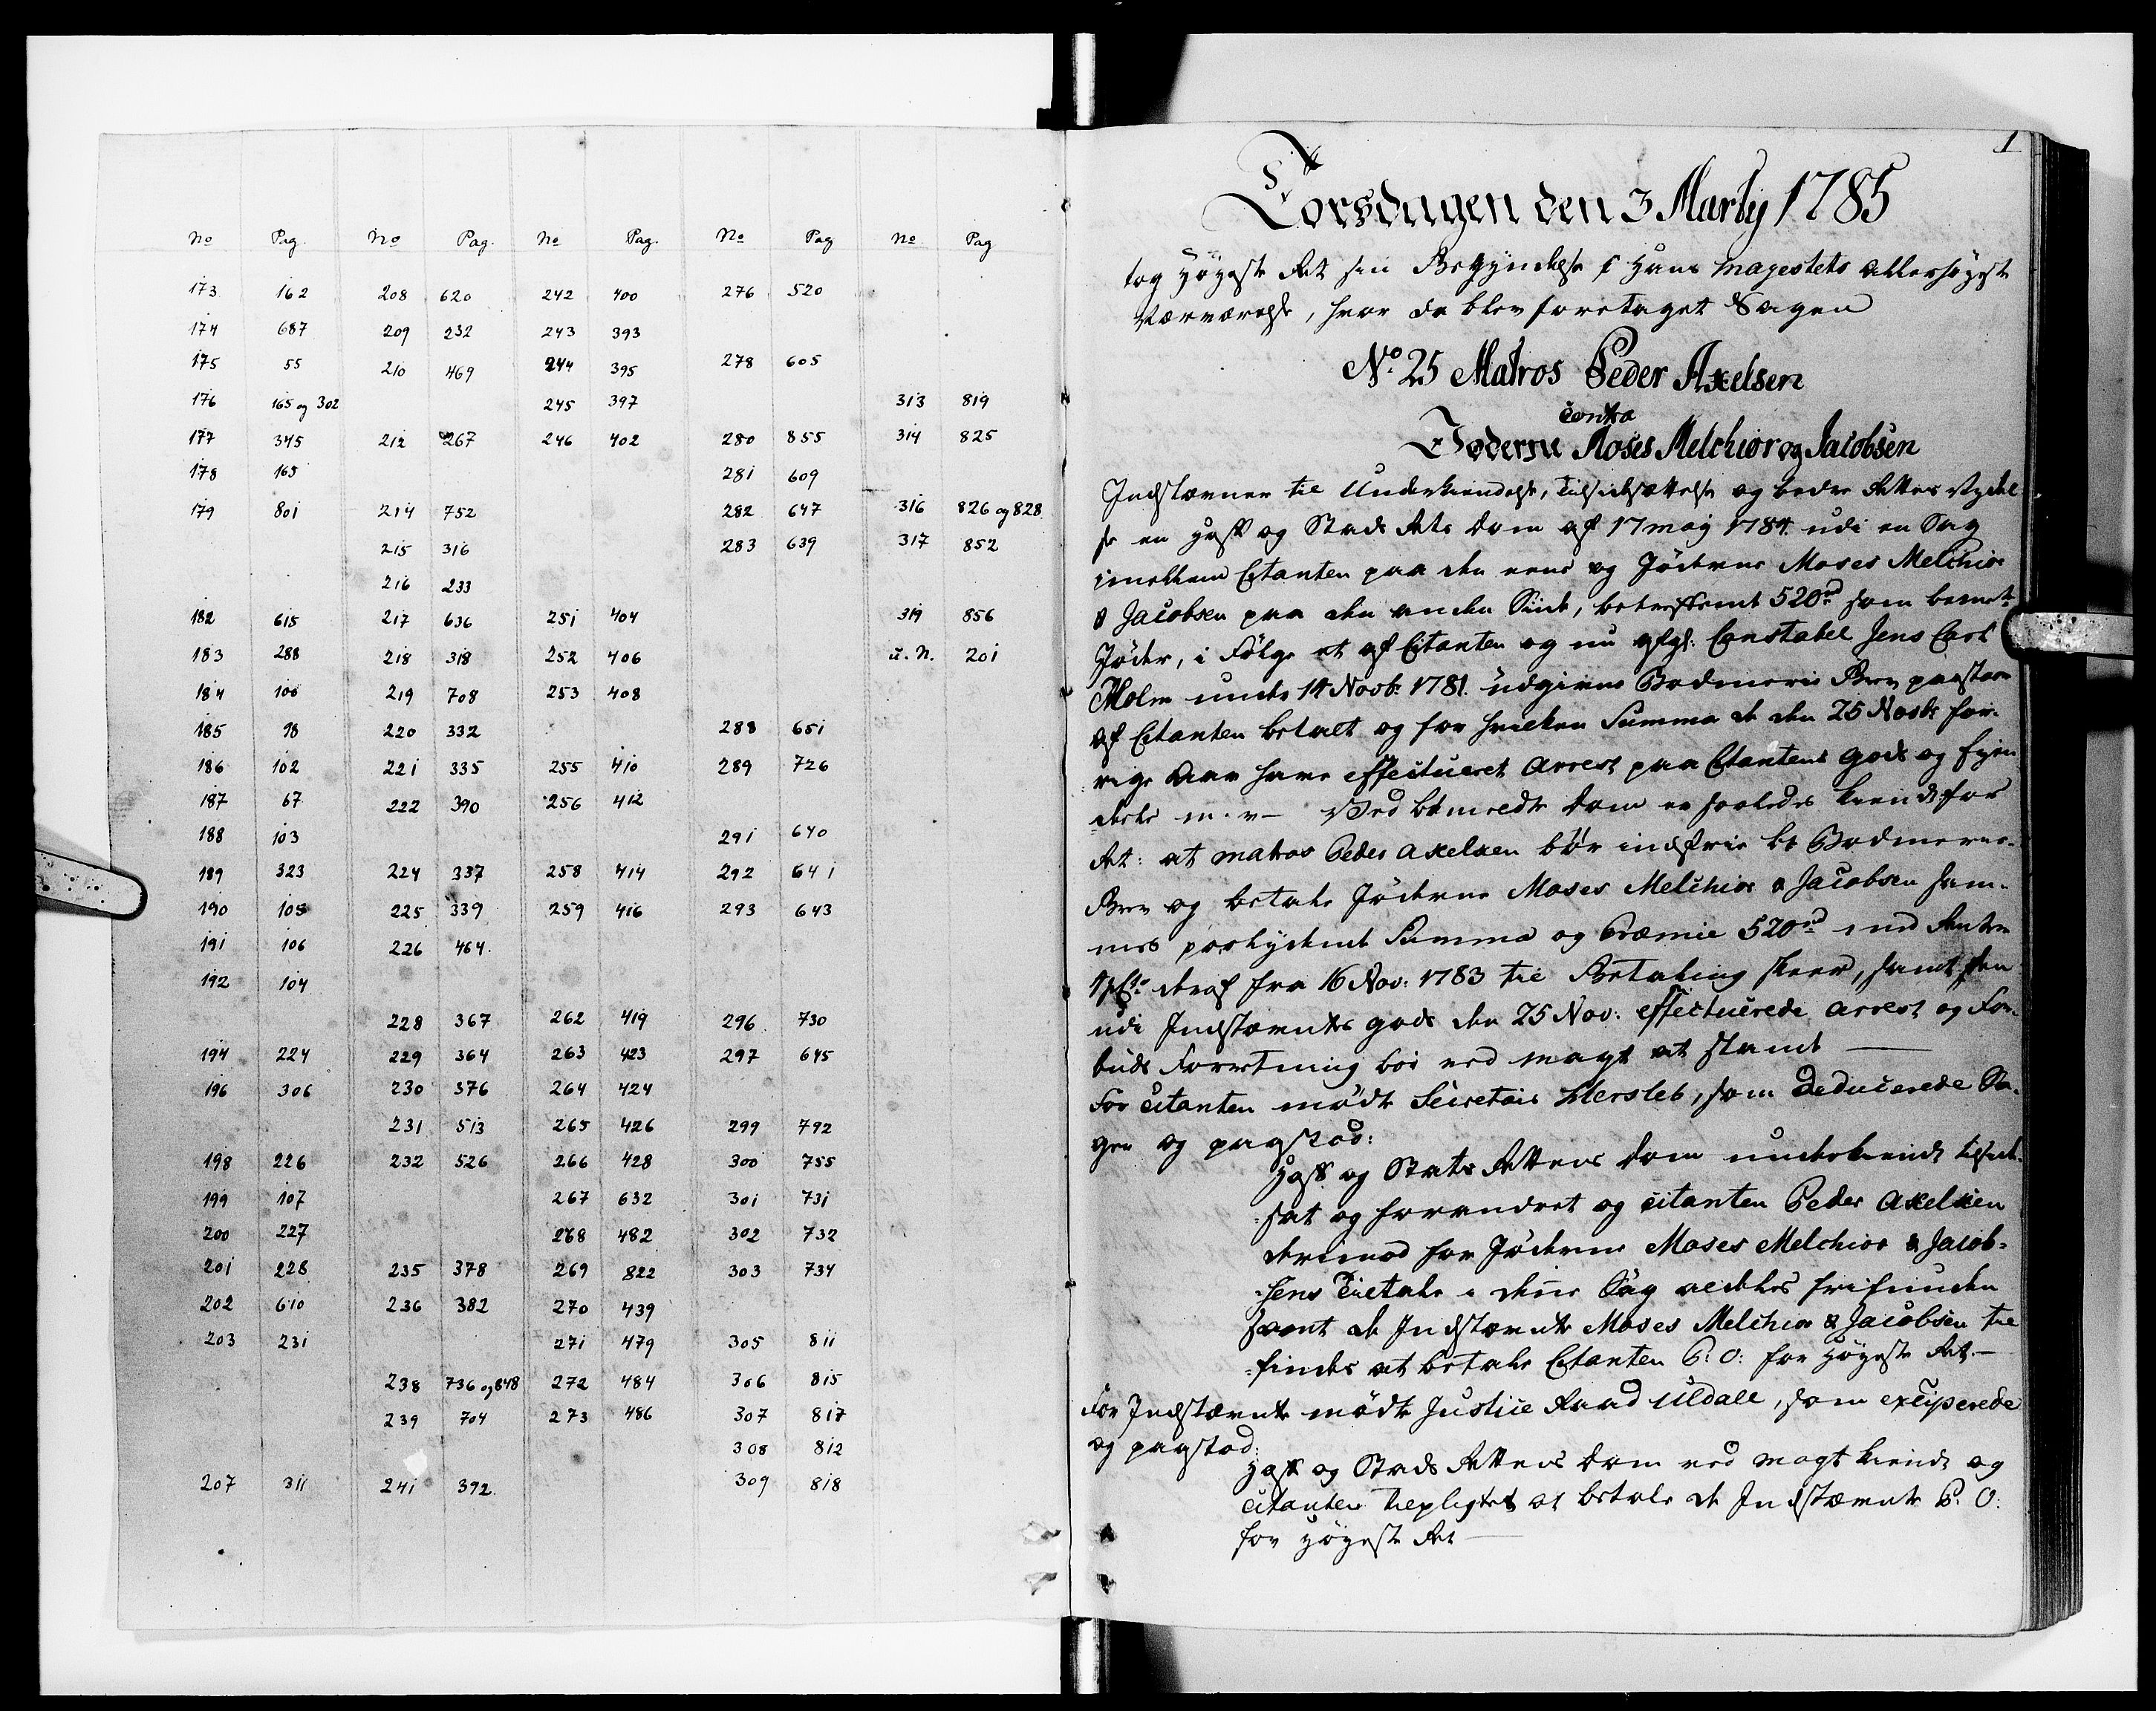 No Pag. No Pag. No Pag. No Pag No Pag
173 162 208 620 242 400 276 520
174 687 209 232 243 393
175 55 210 469 244 395 278 605
176 165 og 302 245 397 313 819
177 345 212 267 246 402 280 855 314 825
178 165 281 609
179 801 214 752 282 647 316 826 og 828
215 316 283 639 317 852
216 233
182 615 217 636 251 404 319 856
183 288 218 318 252 406 u. N. 201
184 100 219 708 253 408
185 98 220 332 288 651
186 102 221 335 255 410 289 726
187 67 222 390 256 412
188 103 291 640
189 323 224 337 258 414 292 641
190 105 225 339 259 416 293 643
191 106 226 464.
192 104
228 367 262 419 296 730
194 224 229 364 263 423 297 645
196 306 230 376 264 424
231 513 265 426 299 792
198 226 232 526 266 428 300 755
199 107 267 632 301 731
200 227 268 482 302 732
201 228 235 378 269 822 303 734
202 610 236 382 270 439
203 231 271 479 305 811
238 736 og 848 272 484 306 815
239 704 273 486 307 817
308 812
207 311 241 392. 309 818
1
Torsdagen den 3 Martij 1785
tog Høyeste Ret sin Begyndelse i Hans Mayestets Allerhøyeste
Nærværelse, hvor da blev foretaget Sagen
No. 25 Matros Peder Axelsen
contra
Jøderne Moses Melchior og Jacobsen
Indstævner til Underkiendelse, Tilsidesættelse og bedre Rettes Nydel
se en Hoff og Stads Rets Dom af 17 Maj 1784 udi en Sag
imellem Citanten paa den eene og Jøderne Moses Melchior
& Jacobsen paa den anden Side, betreffende 520 rd som bemelte
Jøder, i Følge et af Citanten og nu afgl. Constabel Jens Carl
Holm under 14 Novb: 1781. udgivne Bodmerie Brev paastaar
af Citanten betalt og for hvilken Summa de den 25 Novbr for-
rige Aar have effectueret Arrest paa Citantens Gods og Eyen
dele m. v. — Ved bemeldte Dom er saaledes kiendt for
Ret: at Matros Peder Axelsen bør indfrie bte Bodmerie-
Brev og betale Jøderne Moses Melchior & Jacobsen sam-
mes paalydende Summa og Præmie 520 rd med Renter
deraf fra 16 Nov: 1783 til Betaling skeer, samt den
udi Indstævntes Gods den 25 Nov: effectuerede Arrest og For-
buds Forretning bør ved Magt at stande —
For Citanten mødte Secretair Hersleb, som deducerede Sa-
gen og paastod:
Hoff og Stads Rettens Dom underkiendt tilside-
sat og forandret og Citanten Peder Axelsen
derimod for Jøderne Moses Melchior & Jacob-
sens Tiltale i denne Sag aldeles frifunden
samt de Indstævnte Moses Melchior & Jacobsen til
findes at betale Citanten P: O: for Høyeste Ret. —
For Indstævnte mødte Justice Raad Uldall, som exciperede
og paastod:
Hoff og Stads Rettens Dom ved Magt kiendt og
Citanten tilpligtet at betale de Indstævnte P. O:
for Høyeste Ret —